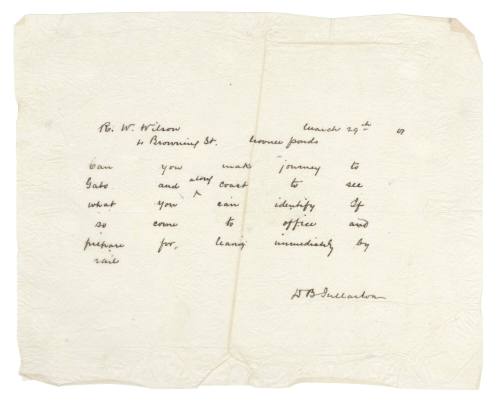 R. W. Wilson March 29th
4 Browning St. Moonee ponds
Can you make journey to
Gabo and along coast to see
what you can identify If
so come to office and
prepare for, leaving immediately by
rail
D B